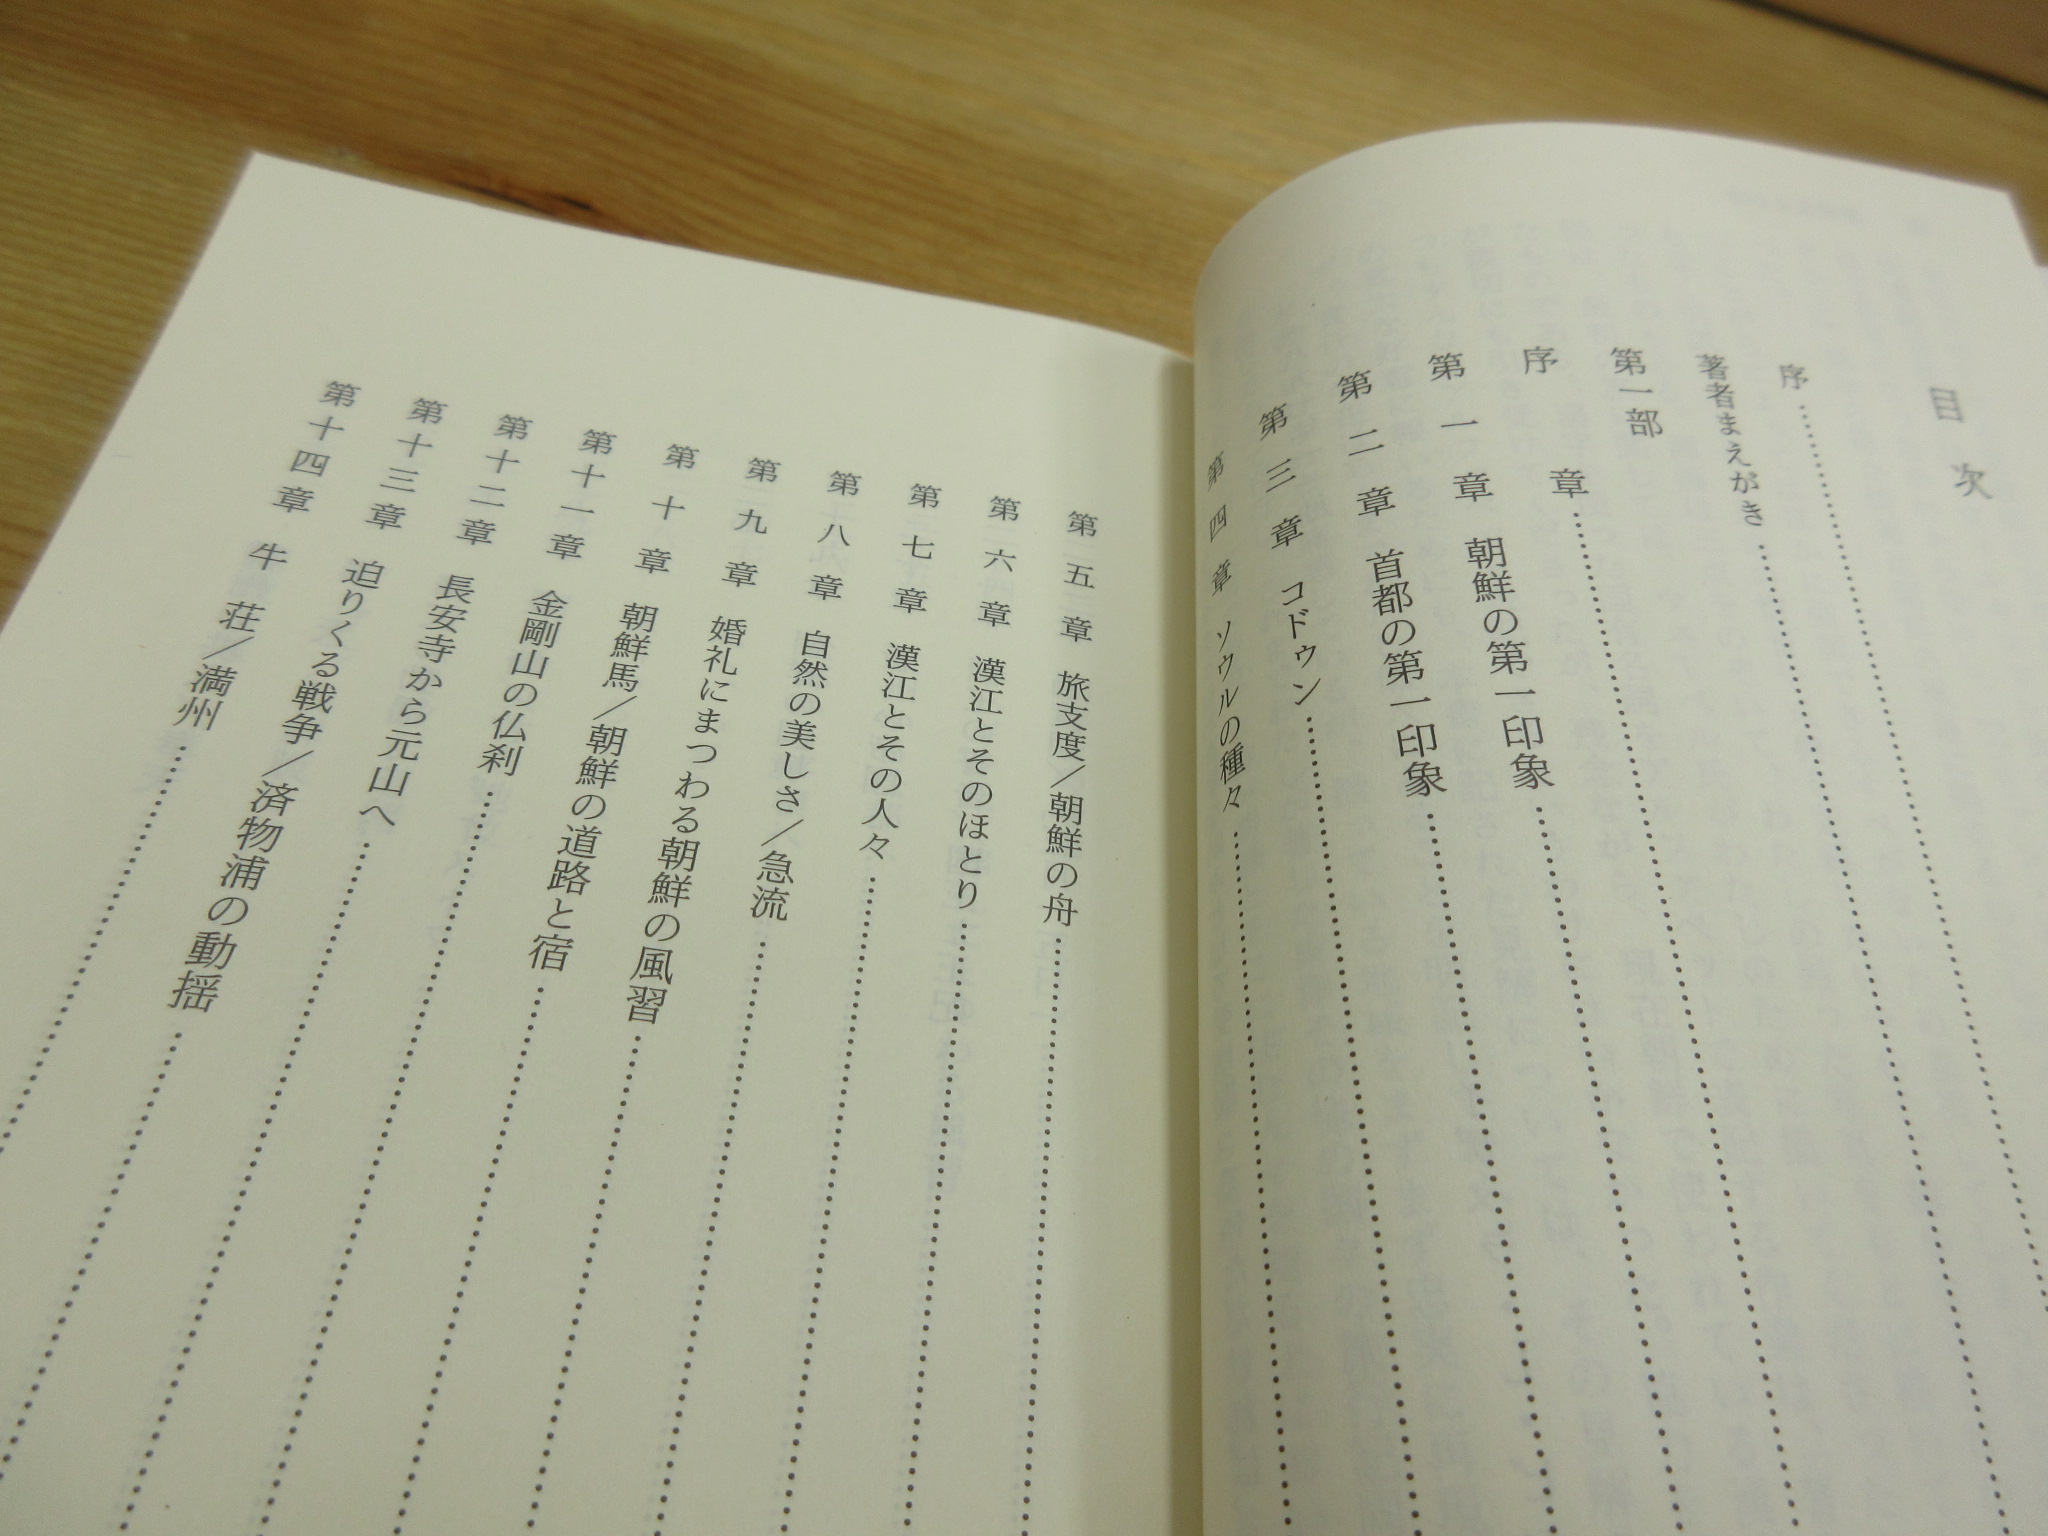 目次
序
著者まえがき
第一部
序章
第一章 朝鮮の第一印象
第二章 首都の第一印象
第三章 コドゥン
第四章 ソウルの種々
第五章 旅支度／朝鮮の舟
第六章 漢江とそのほとり
第七章 漢江とその人々
第八章 自然の美しさ／急流
第九章 婚礼にまつわる朝鮮の風習
第十章 朝鮮馬／朝鮮の道路と宿
第十一章 金剛山の仏刹
第十二章 長安寺から元山へ
第十三章 迫りくる戦争／済物浦の動揺
第十四章 牛荘／満州